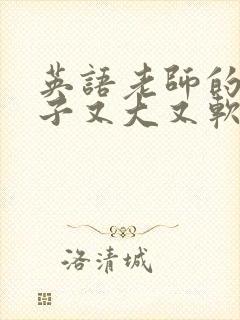 英語老師的
子又大又軟
洛清城